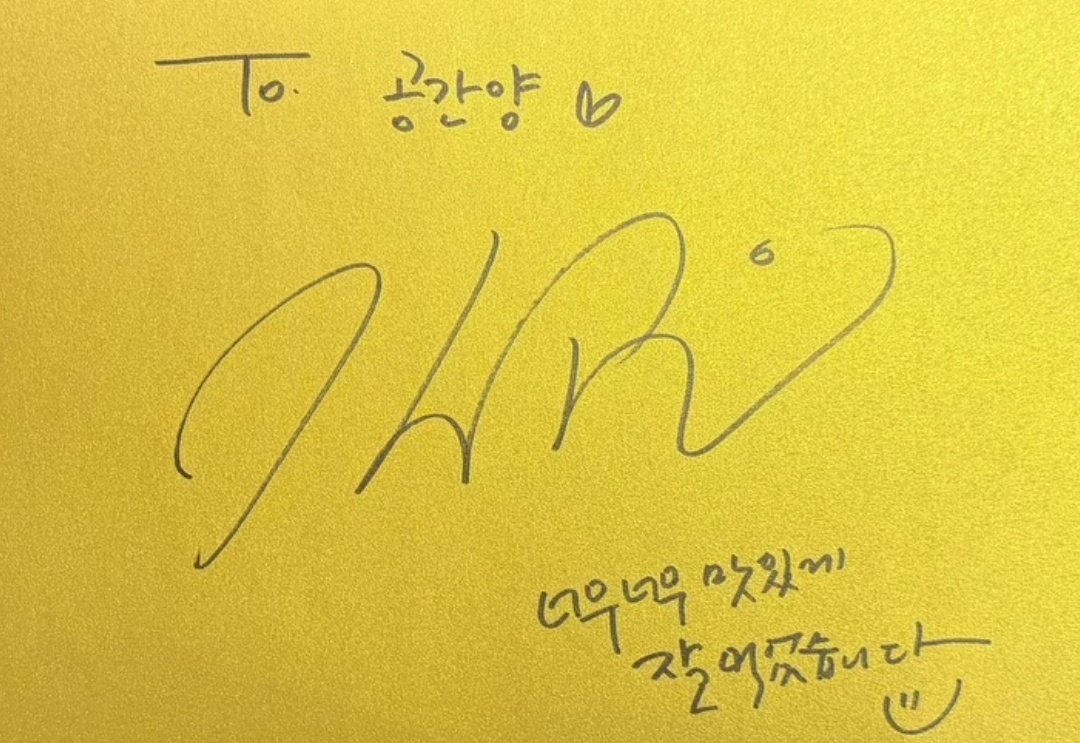 To. 공간양 ♡
너무너무 맛있게
잘 먹었습니다